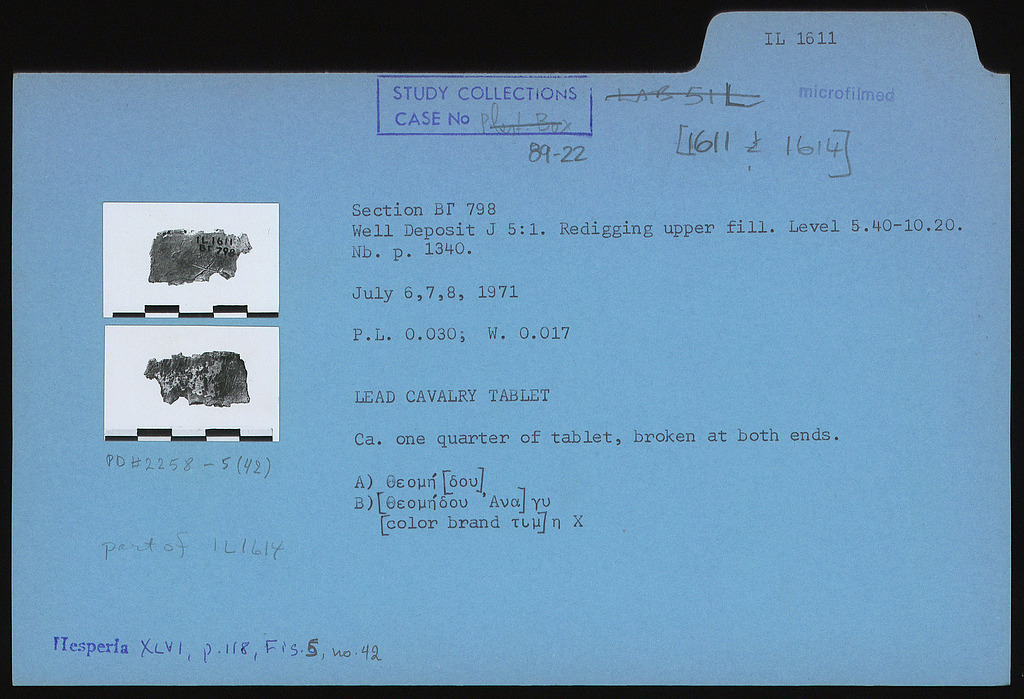 IL 1611
STUDY COLLECTIONS
CASE No Phot. Box
89-22
LAB 51L
microfilmed
[1611 + 1614]
IL1611
ΒΓ 798
Section ΒΓ 798
Well Deposit J 5:1. Redigging upper fill. Level 5.40-10.20.
Nb. p. 1340.
July 6,7,8, 1971
P.L. 0.030; W. 0.017
LEAD CAVALRY TABLET
Ca. one quarter of tablet, broken at both ends.
A) Θεομή[δου]
B)[Θεομήδου Ἀνα]γυ
[color brand τιμ]η Χ
PD#2258-5(42)
part of IL1614
Hesperia XLVI, p.118, Fig.5, no.42